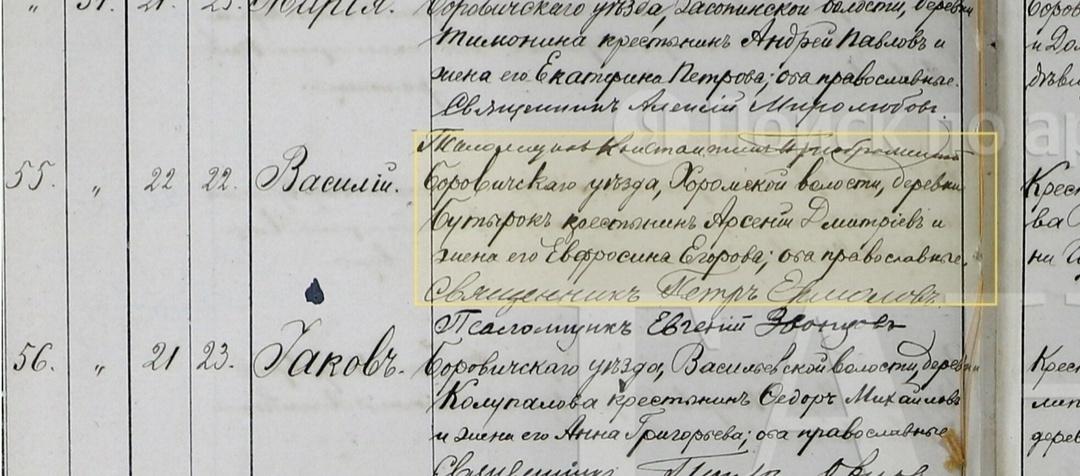 " 31. 21. 23. Марія. Боровичскаго уѣзда, волости, деревни
Тимонина крестьянинъ Андрей Павловъ и
жена его Екатерина Петрова; оба православные.
Священникъ Алексій Миролюбовъ
Псаломщикъ Константинъ
55. " 22 22. Василій. Боровичскаго уѣзда, Хоромской волости, деревни
Бутырокъ крестьянинъ Арсеній Дмитріевъ и
жена его Евфросина Егорова; оба православные.
Священникъ Петръ Ермоловъ.
Псаломщикъ Евгеній
56. " 21 23. Іаковъ. Боровичскаго уѣзда, Васильевской волости, деревни
Колупалова крестьянинъ Ѳедоръ Михайловъ
и жена его Анна Григорьева; оба православные
Священникъ